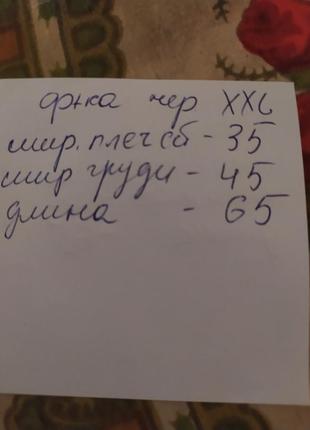 ф-ка чер XXL
шир. плеч сб - 35
шир груди - 45
длина - 65